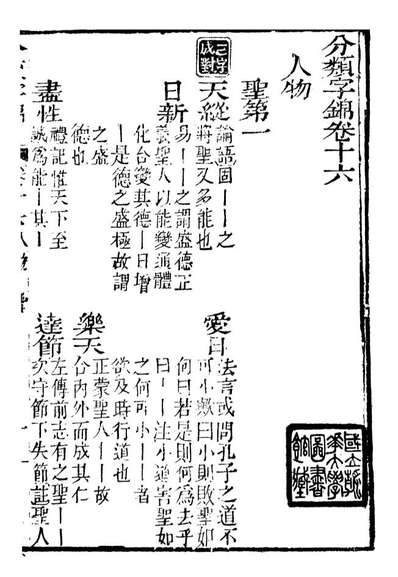 分類字錦卷十六
人物
聖第一
二字成對
天縱
論語固丨丨之
將聖又多能也
愛日
法言或問孔子之道不
可小歟曰小則敗聖如
何曰若是則何爲去乎
曰丨丨注小道害聖如
之何可小丨丨者
欲及時行道也
日新
易丨丨之謂盛德正
義聖人以能變通體
化合變其德丨日增
丨是德之盛極故謂
之盛
德也
樂天
正蒙聖人丨丨故
合內外而成其仁
盡性
禮記惟天下至
誠爲能丨其丨
達節
左傳前志有之聖丨丨
次守節下失節註聖人
國立清華大學圖書館藏